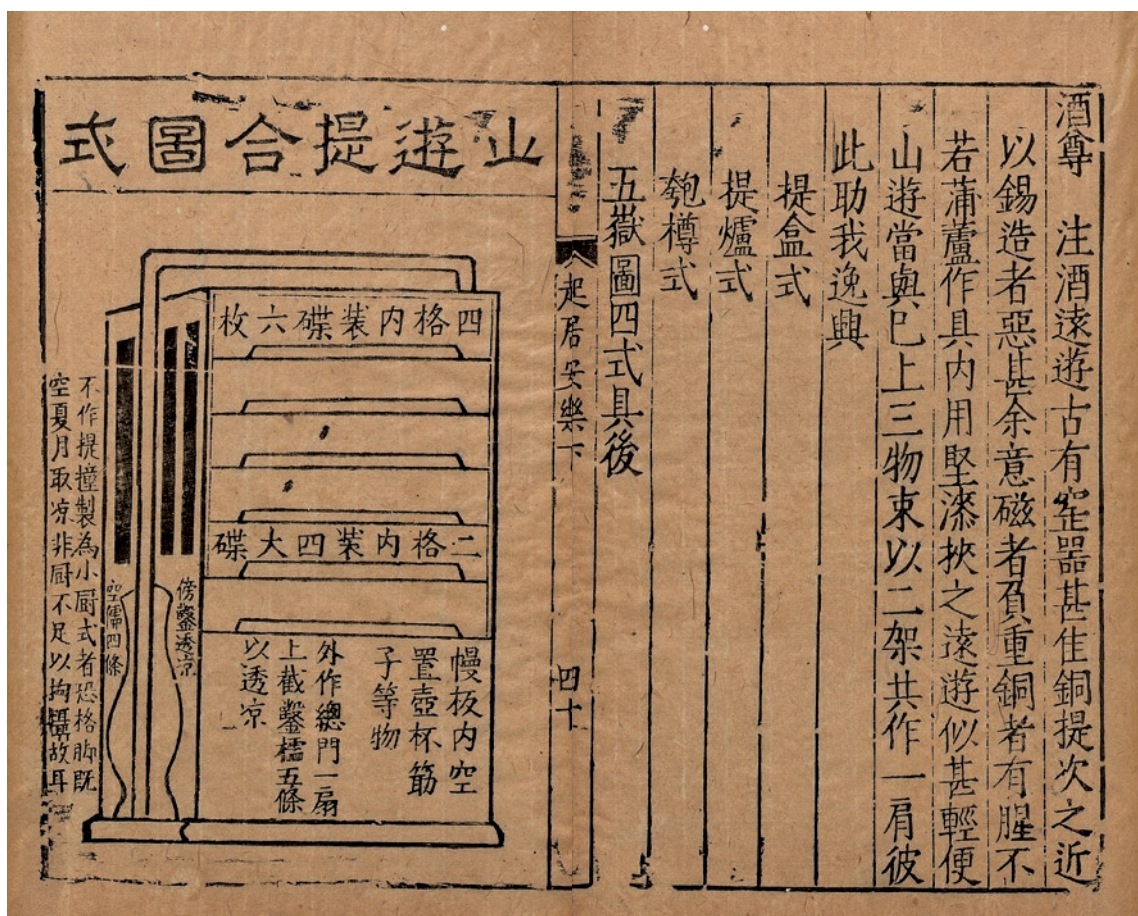 酒尊　注酒遠遊古有窑器甚佳銅提次之近
以錫造者惡甚余意磁者負重銅者有腥不
若蒲蘆作具内用堅漆挾之遠遊似甚輕便
山遊當與已上三物束以二架共作一肩彼
此助我逸興
提盒式
提爐式
匏樽式
五嶽圖四式具後
起居安樂下
四十
山遊提合圖式
四格内装碟六枚
二格内装四大碟
幔板内空
置壺杯筯
子等物
外作總門一扇
上截鑿櫺五條
以透凉
傍鑿透凉
空 四條
不作提撞製為小厨式者恐格脚既
空夏月取凉非厨不足以拘攝故耳